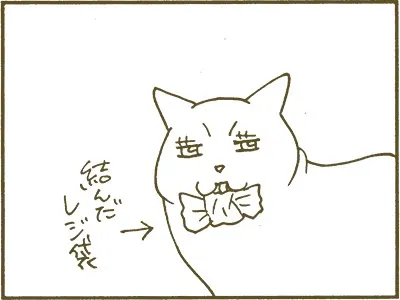 結んだ
レジ袋